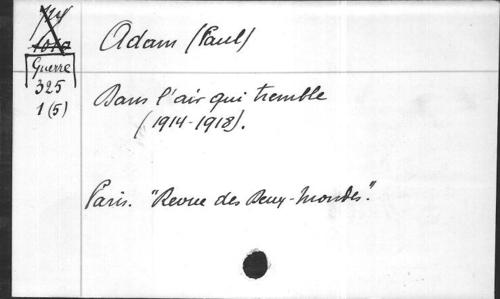 Adam (Paul)
Guerre
325
1 (5)
Dans l'air qui tremble
(1914-1918).
Paris. "Revue des Deux-Mondes".